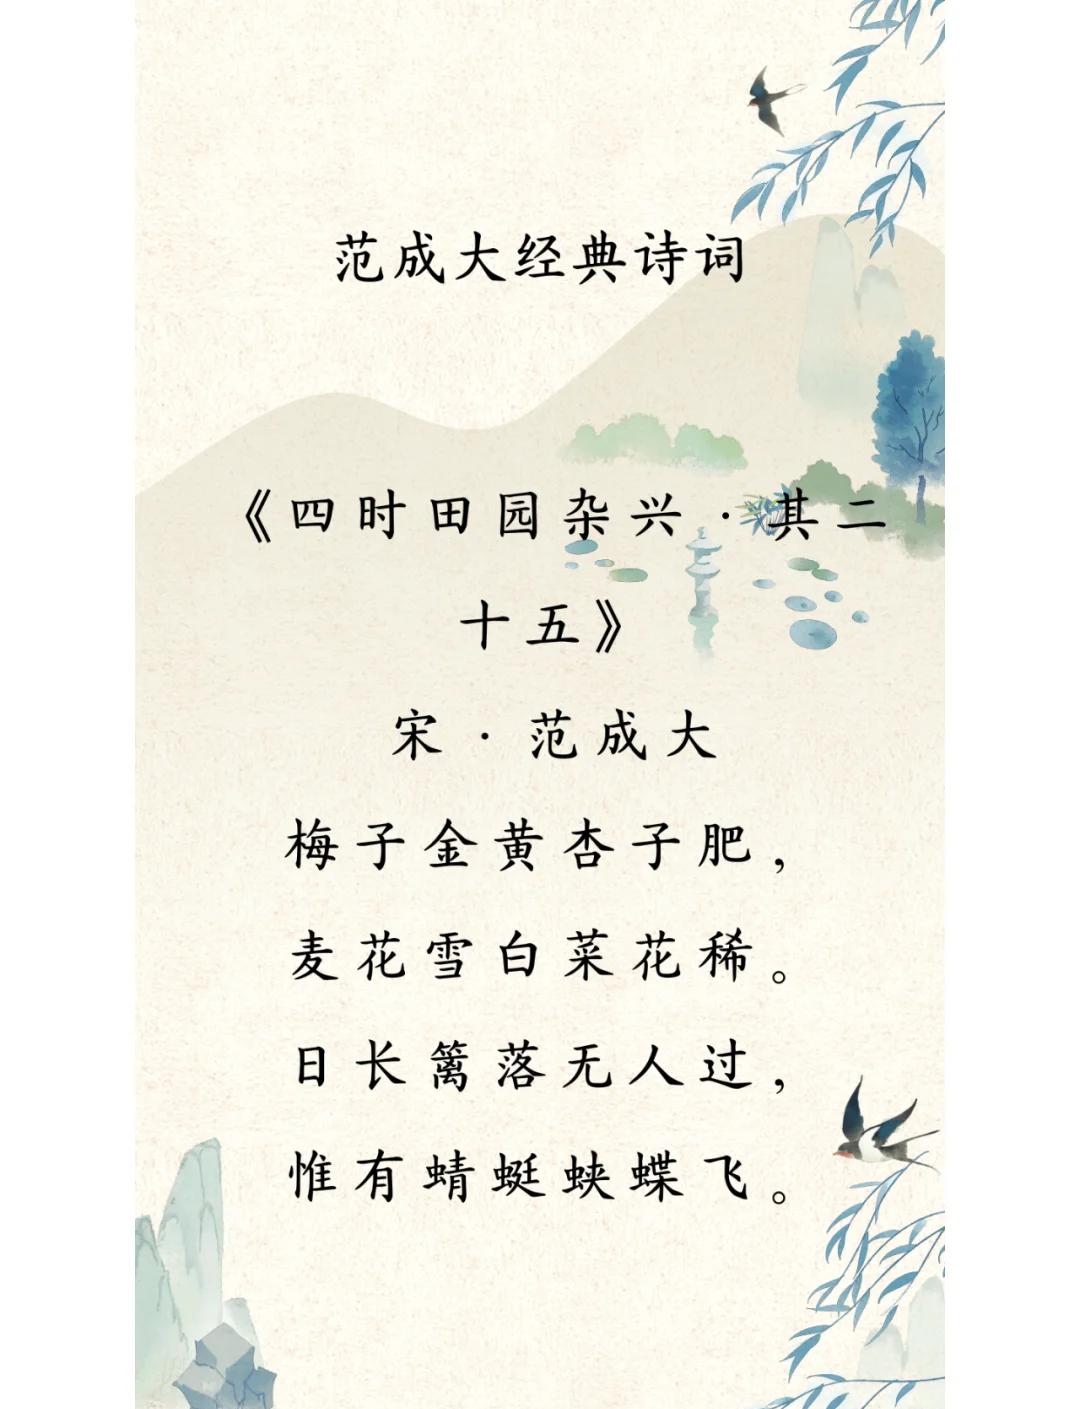 范成大经典诗词
《四时田园杂兴·其二
十五》
宋·范成大
梅子金黄杏子肥，
麦花雪白菜花稀。
日长篱落无人过，
惟有蜻蜓蛱蝶飞。